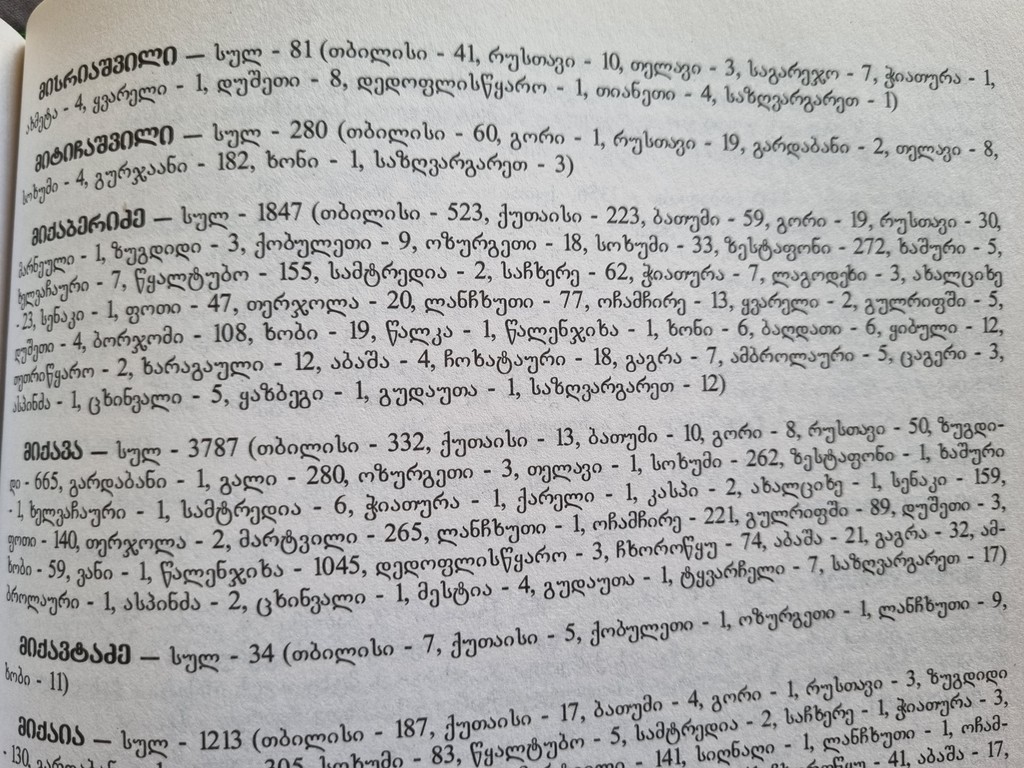 მისრიაშვილი — სულ - 81 (თბილისი - 41, რუსთავი - 10, თელავი - 3, საგარეჯო - 7, ჭიათურა - 1,
ახმეტა - 4, ყვარელი - 1, დუშეთი - 8, დედოფლისწყარო - 1, თიანეთი - 4, საზღვარგარეთ - 1)
მიტიჩაშვილი — სულ - 280 (თბილისი - 60, გორი - 1, რუსთავი - 19, გარდაბანი - 2, თელავი - 8,
სოხუმი - 4, გურჯაანი - 182, ხონი - 1, საზღვარგარეთ - 3)
მიქაბერიძე — სულ - 1847 (თბილისი - 523, ქუთაისი - 223, ბათუმი - 59, გორი - 19, რუსთავი - 30,
მარნეული - 1, ზუგდიდი - 3, ქობულეთი - 9, ოზურგეთი - 18, სოხუმი - 33, ზესტაფონი - 272, ხაშური - 5,
ხელვაჩაური - 7, წყალტუბო - 155, სამტრედია - 2, საჩხერე - 62, ჭიათურა - 7, ლაგოდეხი - 3, ახალციხე
- 23, სენაკი - 1, ფოთი - 47, თერჯოლა - 20, ლანჩხუთი - 77, ოჩამჩირე - 13, ყვარელი - 2, გულრიფში - 5,
დუშეთი - 4, ბორჯომი - 108, ხობი - 19, წალკა - 1, წალენჯიხა - 1, ხონი - 6, ბაღდათი - 6, ყიბული - 12,
თეთრიწყარო - 2, ხარაგაული - 12, აბაშა - 4, ჩოხატაური - 18, გაგრა - 7, ამბროლაური - 5, ცაგერი - 3,
ასპინძა - 1, ცხინვალი - 5, ყაზბეგი - 1, გუდაუთა - 1, საზღვარგარეთ - 12)
მიქავა — სულ - 3787 (თბილისი - 332, ქუთაისი - 13, ბათუმი - 10, გორი - 8, რუსთავი - 50, ზუგდი-
დი - 665, გარდაბანი - 1, გალი - 280, ოზურგეთი - 3, თელავი - 1, სოხუმი - 262, ზესტაფონი - 1, ხაშური
- 1, ხელვაჩაური - 1, სამტრედია - 6, ჭიათურა - 1, ქარელი - 1, კასპი - 2, ახალციხე - 1, სენაკი - 159,
ფოთი - 140, თერჯოლა - 2, მარტვილი - 265, ლანჩხუთი - 1, ოჩამჩირე - 221, გულრიფში - 89, დუშეთი - 3,
ხობი - 59, ვანი - 1, წალენჯიხა - 1045, დედოფლისწყარო - 3, ჩხოროწყუ - 74, აბაშა - 21, გაგრა - 32, ამ-
ბროლაური - 1, ასპინძა - 2, ცხინვალი - 1, მესტია - 4, გუდაუთა - 1, ტყვარჩელი - 7, საზღვარგარეთ - 17)
მიქავტაძე — სულ - 34 (თბილისი - 7, ქუთაისი - 5, ქობულეთი - 1, ოზურგეთი - 1, ლანჩხუთი - 9,
ხობი - 11)
მიქაია — სულ - 1213 (თბილისი - 187, ქუთაისი - 17, ბათუმი - 4, გორი - 1, რუსთავი - 3, ზუგდიდი
- 130, 305, სოხუმი - 83, წყალტუბო - 5, სამტრედია - 2, საჩხერე - 1, ჭიათურა - 3,
141, სიღნაღი - 1, ლანჩხუთი - 1, ოჩამ-
- 41, აბაშა - 17,